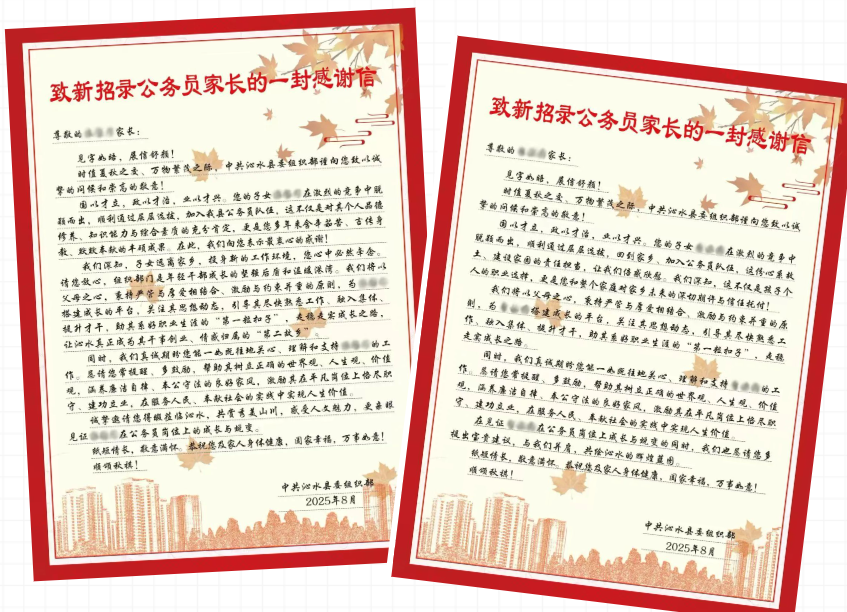 致新招录公务员家长的一封感谢信
尊敬的 家长：
见字如晤，展信舒颜！
时值夏秋之交、万物繁茂之际，中共沁水县委组织部谨向您致以诚
挚的问候和崇高的敬意！
国以才立，政以才治，业以才兴。您的子女 在激烈的竞争中脱
颖而出，顺利通过层层选拔，加入我县公务员队伍，这不仅是对其个人品德
修养、知识能力与综合素质的充分肯定，更是您多年来含辛茹苦、言传身
教、默默奉献的丰硕成果。在此，我们向您表示最衷心的感谢！
我们深知，子女远离家乡，投身新的工作环境，您心中必然牵念。
请您放心，组织部门是年轻干部成长的坚强后盾和温暖港湾。我们将以
父母之心，秉持严管与厚爱相结合、激励与约束并重的原则，为
搭建成长的平台，关注其思想动态，引导其尽快熟悉工作、融入集体、
提升才干，助其系好职业生涯的“第一粒扣子”，走稳走实成长之路，
让沁水真正成为其干事创业、情感归属的“第二故乡”。
同时，我们真诚期盼您能一如既往地关心、理解和支持 的工
作。恳请您常提醒、多鼓励，帮助其树立正确的世界观、人生观、价值
观，涵养廉洁自律、奉公守法的良好家风，激励其在平凡岗位上恪尽职
守、建功立业，在服务人民、奉献社会的实践中实现人生价值。
诚挚邀请您得暇莅临沁水，共赏秀美山川，感受人文魅力，更亲眼
见证 在公务员岗位上的成长与蜕变。
纸短情长，敬意满怀。恭祝您及家人身体健康，阖家幸福，万事如意！
顺颂秋祺！
中共沁水县委组织部
2025年8月
致新招录公务员家长的一封感谢信
尊敬的 家长：
见字如晤，展信舒颜！
时值夏秋之交、万物繁茂之际，中共沁水县委组织部谨向您致以诚
挚的问候和崇高的敬意！
国以才立，政以才治，业以才兴。您的子女 在激烈的竞争中
脱颖而出，顺利通过层层选拔，回到家乡、加入公务员队伍，这份心系故
土、建设家园的责任担当，让我们倍感欣慰。我们深知，这不仅是孩子个
人的职业选择，更是您和整个家庭对家乡未来的深切期许与信任托付！
我们将以父母之心，秉持严管与厚爱相结合、激励与约束并重的原
则，为 搭建成长的平台，关注其思想动态，引导其尽快熟悉工
作、融入集体、提升才干，助其系好职业生涯的“第一粒扣子”，走稳
走实成长之路。
同时，我们真诚期盼您能一如既往地关心、理解和支持 的工
作。恳请您常提醒、多鼓励，帮助其树立正确的世界观、人生观、价值
观，涵养廉洁自律、奉公守法的良好家风，激励其在平凡岗位上恪尽职
守、建功立业，在服务人民、奉献社会的实践中实现人生价值。
在见证 在公务员岗位上成长与蜕变的同时，我们也恳请您多
提出宝贵建议，与我们并肩，共绘沁水的辉煌蓝图。
纸短情长，敬意满怀。恭祝您及家人身体健康，阖家幸福，万事如意！
顺颂秋祺！
中共沁水县委组织部
2025年8月